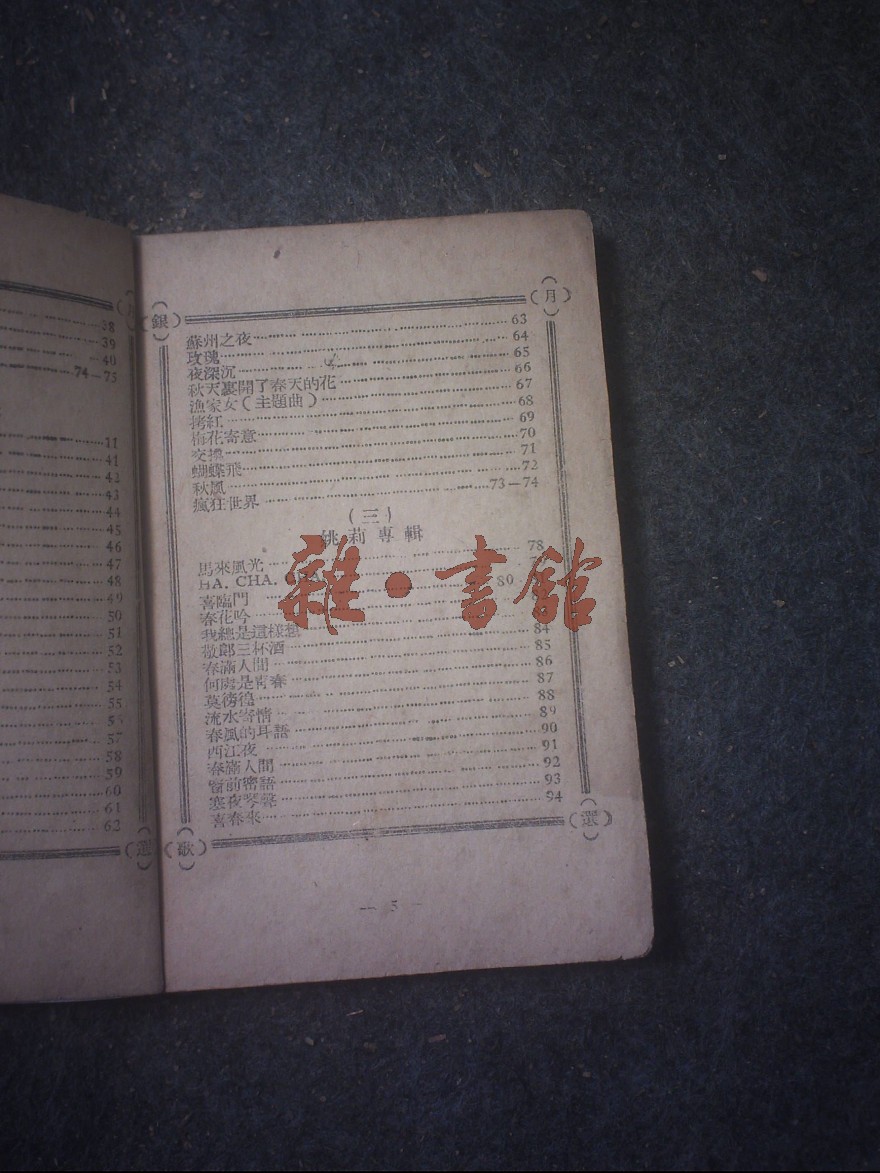 38
39
40
74—75
11
41
42
43
44
45
46
47
48
49
50
51
52
53
54
55
56
57
58
59
60
61
62
(選)
(銀) (月)
蘇州之夜 63
玫瑰 64
夜深沉 65
秋天裏開了春天的花 66
漁家女(主題曲) 67
拷紅 68
梅花寄意 69
交換 70
蝴蝶飛 71
秋風 72
瘋狂世界 73—74
(三)
姚莉專輯
馬來風光 78
HA. CHA. CHA
喜臨門 80
春花吟
我總是這樣想 84
敬郎三杯酒 85
春滿人間 86
何處是青春 87
莫徬徨 88
流水寄情 89
春風的耳語 90
西江夜 91
春滿人間 92
窗前密語 93
寒夜琴聲 94
喜春來
(歌) (選)
— 5 —
雜·書館